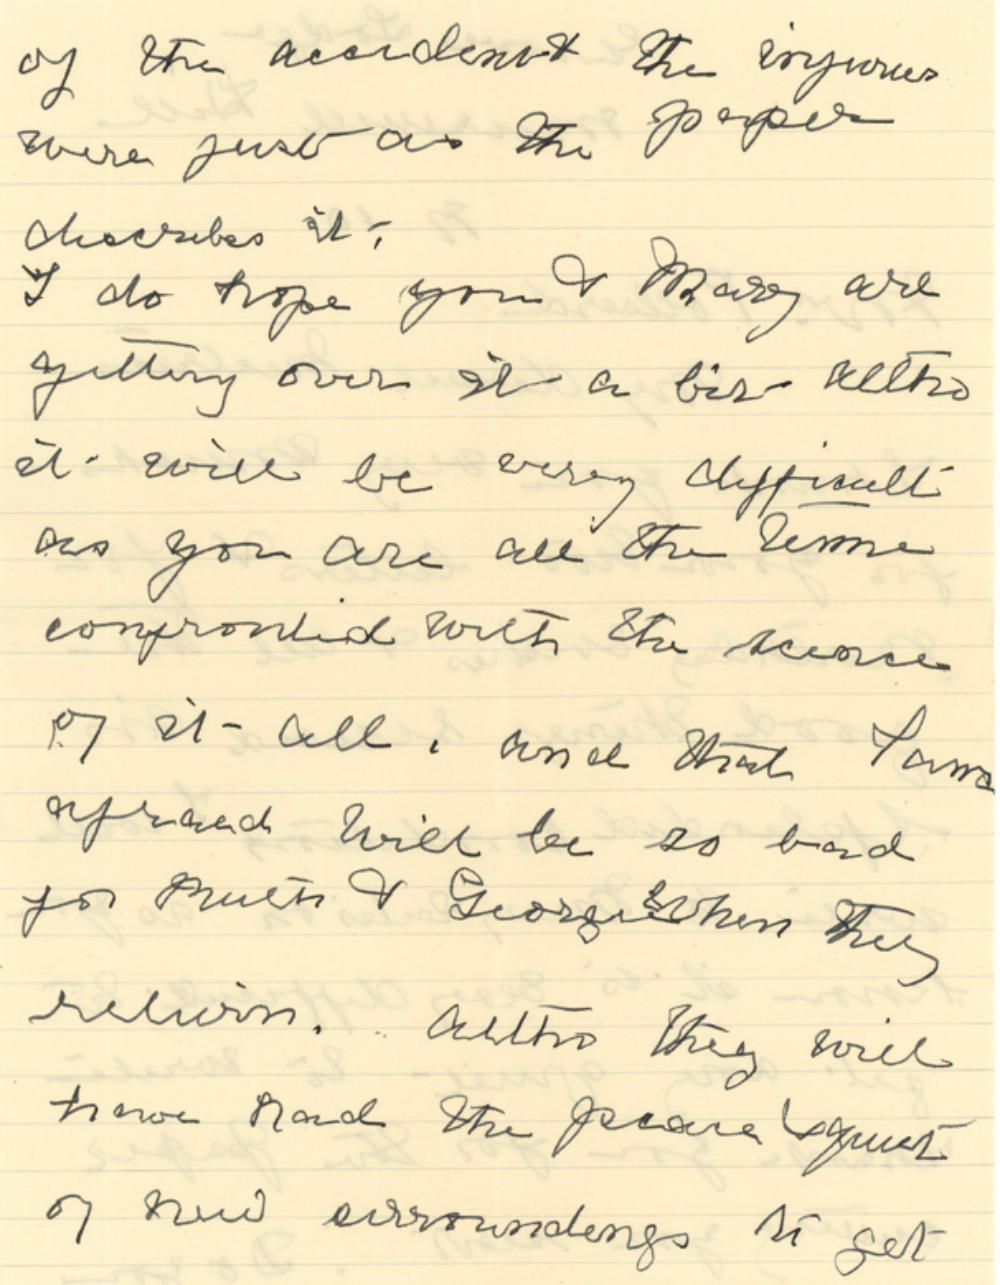 of the accident the injuries
were just as the paper
describes it.
I do hope you & Mary are
getting over it a bit altho
it will be very difficult
as you are all the time
confronted with the scence
of it all, and that I am
afraid will be so bad
for Ruth & George when they
return. altho they will
have had the peace & quiet
of new surroundings to get